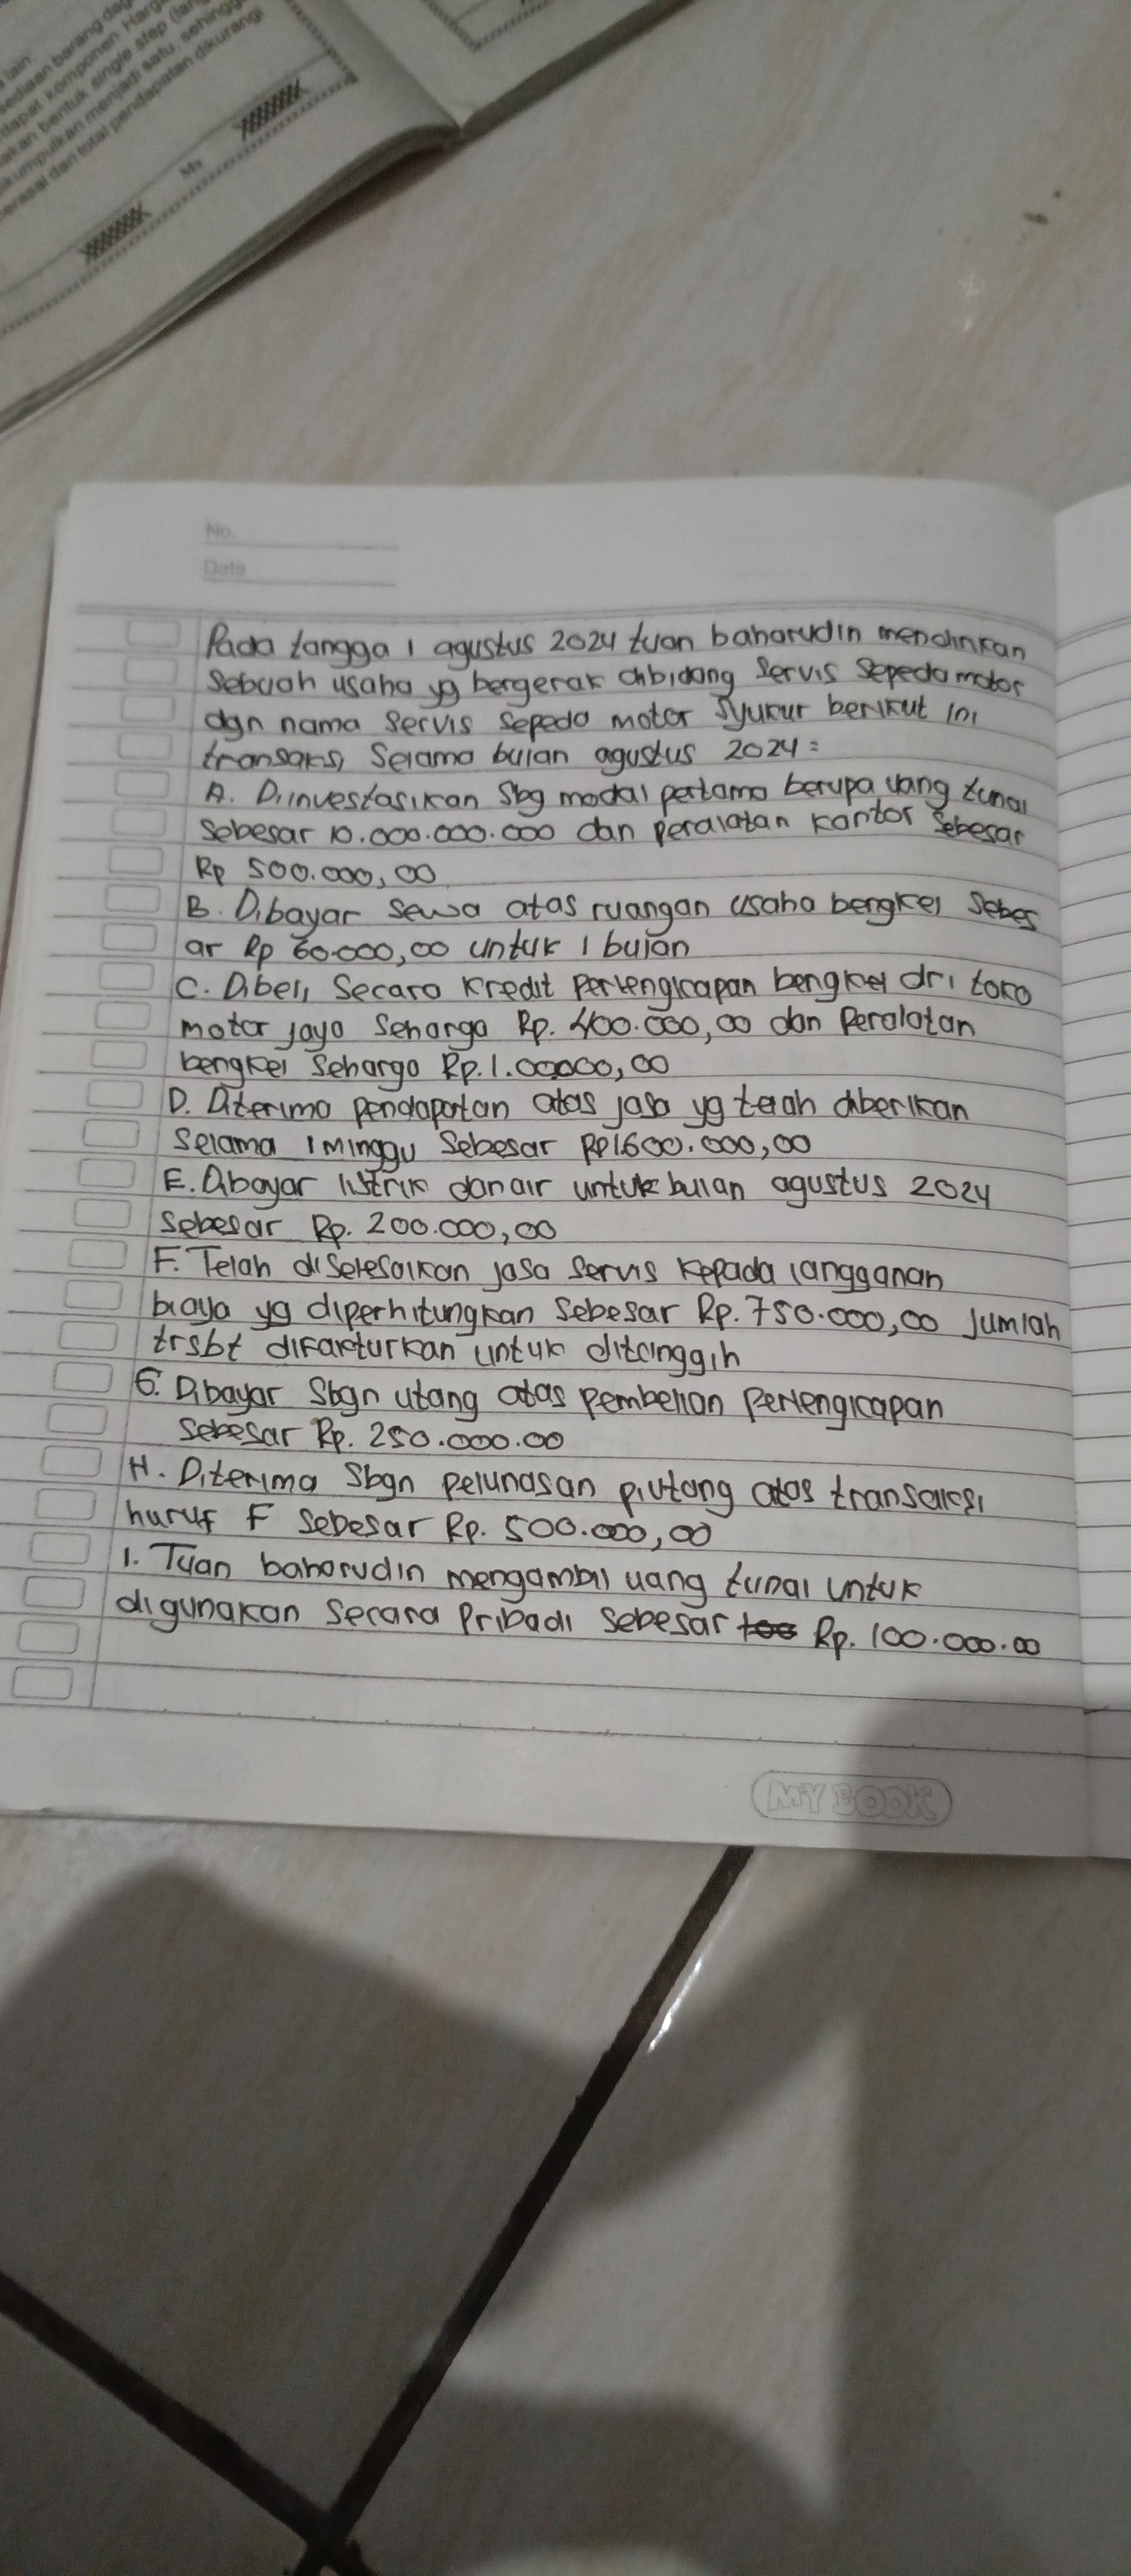 lain
sediaan barang dag
dapat komponen Harg
akan bentuk single step (lan
kumpulkan menjadi satu, sehingg
erasal dari total pendapatan dikurangi
No.
Date
Pada tangga 1 agustus 2024 tuan baharudin mendirikan
Sebuah usaha yg bergerak dibidang Servis Sepeda motor
dgn nama Servis Sepeda motor Syukur berikut ini
transaksi Selama bulan agustus 2024:
A. Diinvestasikan Sbg modal pertama berupa uang tunai
Sebesar 10.000.000.000 dan peralatan kantor Sebesar
Rp 500.000,00
B. Dibayar sewa atas ruangan usaha bengkel Sebes
ar Rp 60.000,00 untuk 1 bulan
C. Dibeli Secara kredit Perlengkapan bengkel dri toko
motor jaya Seharga Rp. 400.000,00 dan Peralatan
bengkel Seharga Rp. 1.00000,00
D. Diterima pendapatan atas jasa yg telah diberikan
Selama 1 minggu Sebesar Rp1.600.000,00
E. Dibayar listrik dan air untuk bulan agustus 2024
Sebesar Rp. 200.000,00
F. Telah diselesaikan jasa Servis kepada langganan
biaya yg diperhitungkan Sebesar Rp. 750.000,00 Jumlah
trsbt difakturkan untuk ditanggih
G. Dibayar Sbgn utang atas pembelian Perlengkapan
Sebesar Rp. 250.000.00
H. Diterima Sbgn pelunasan piutang atas transaksi
huruf F Sebesar Rp. 500.000,00
I. Tuan baharudin mengambil uang tunai untuk
digunakan Secara Pribadi Sebesar Rp. 100.000.00
MY BOOK